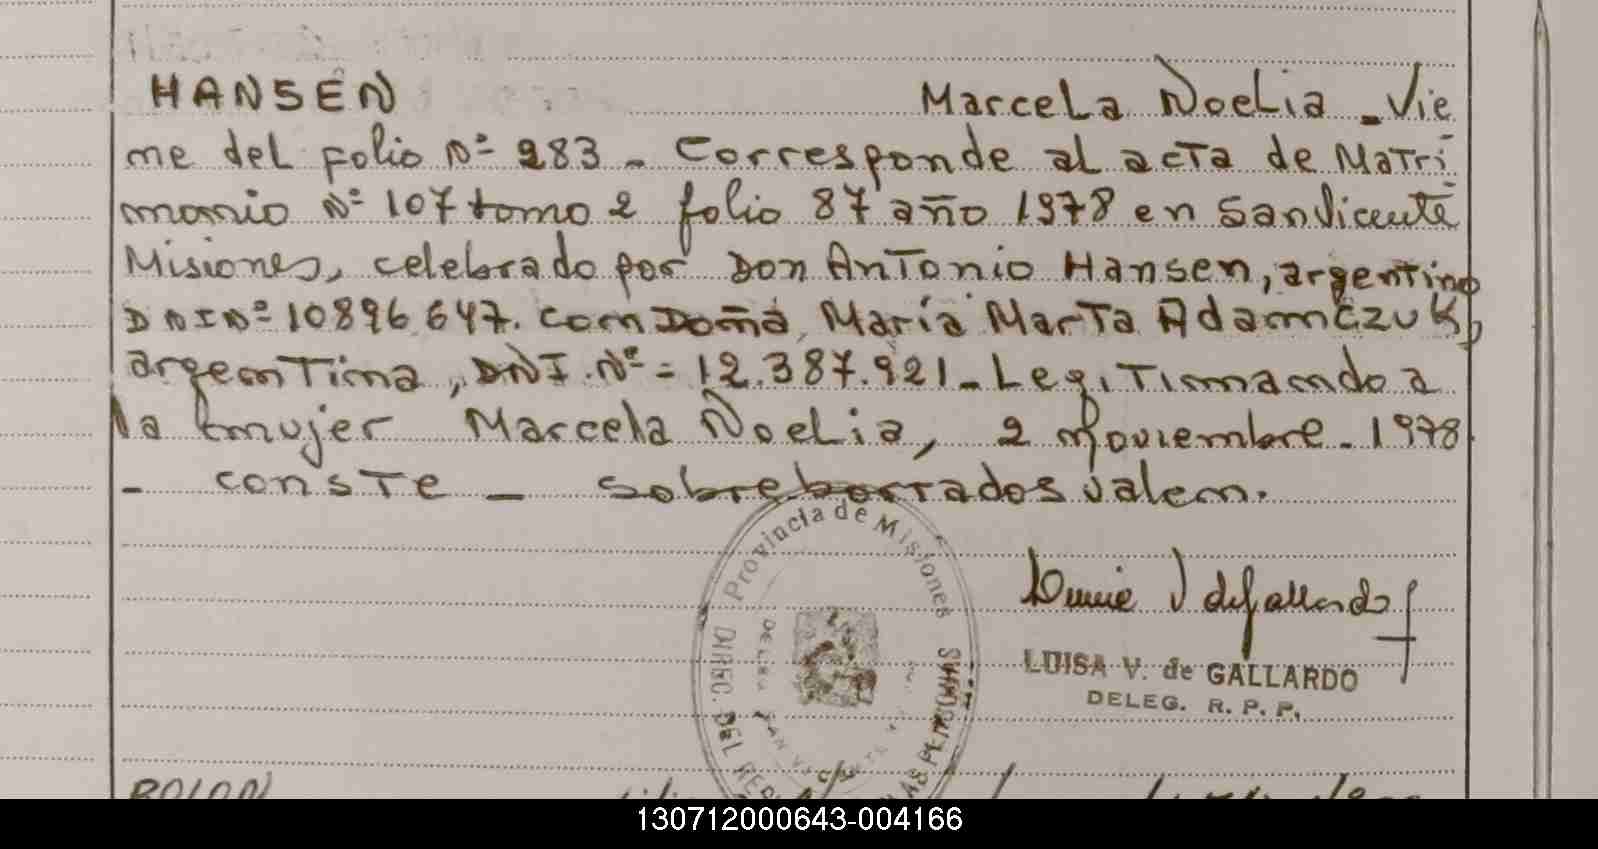 HANSEN Marcela Noelia - Vie
ne del folio Nº 283 - Corresponde al acta de Matri
monio Nº 107 tomo 2 folio 87 año 1978 en San Vicente
Misiones, celebrado por Don Antonio Hansen, argentino
DNI Nº 10896647. con Doña María Marta Adamczuk,
argentina, DNI. Nº = 12.387.921 - Legitimando a
la mujer Marcela Noelia, 2 noviembre - 1978
- conste - sobreborrados valen.
Provincia de Misiones
DIREC. DEL
LUISA V. de GALLARDO
DELEG. R. P. P.
ROLON
130712000643-004166